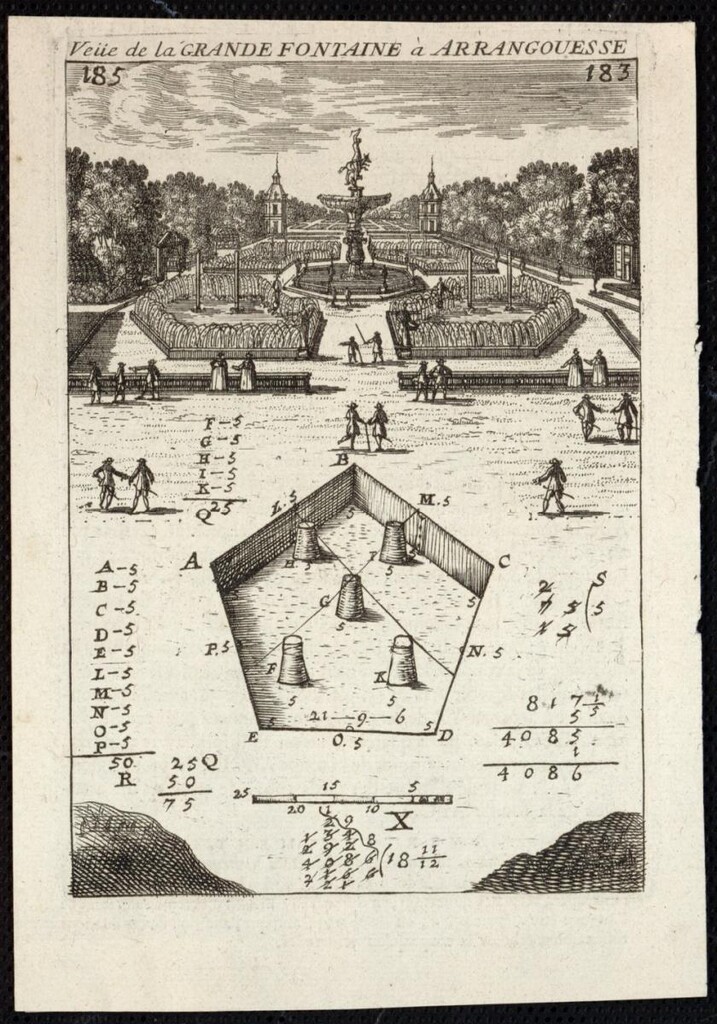 Veüe de la GRANDE FONTAINE à ARRANGOUESSE
185 183
F-5
G-5
H-5
I-5
K-5
Q 25
B
L. 5 M. 5
A C
H 5 I 5
5 5
G 5
P. 5 N. 5
F 5 K 5
21—9—6
E 5 5 D
O. 5
A-5
B-5
C-5
D-5
E-5
L-5
M-5
N-5
O-5
P-5
50
R
25 Q
50
75
2 S
7 5 ( 5
1 5
8 1 7 1/5
5
4 0 8 5
1
4 0 8 6
25 15 5
20 10
X
( 18 11/12